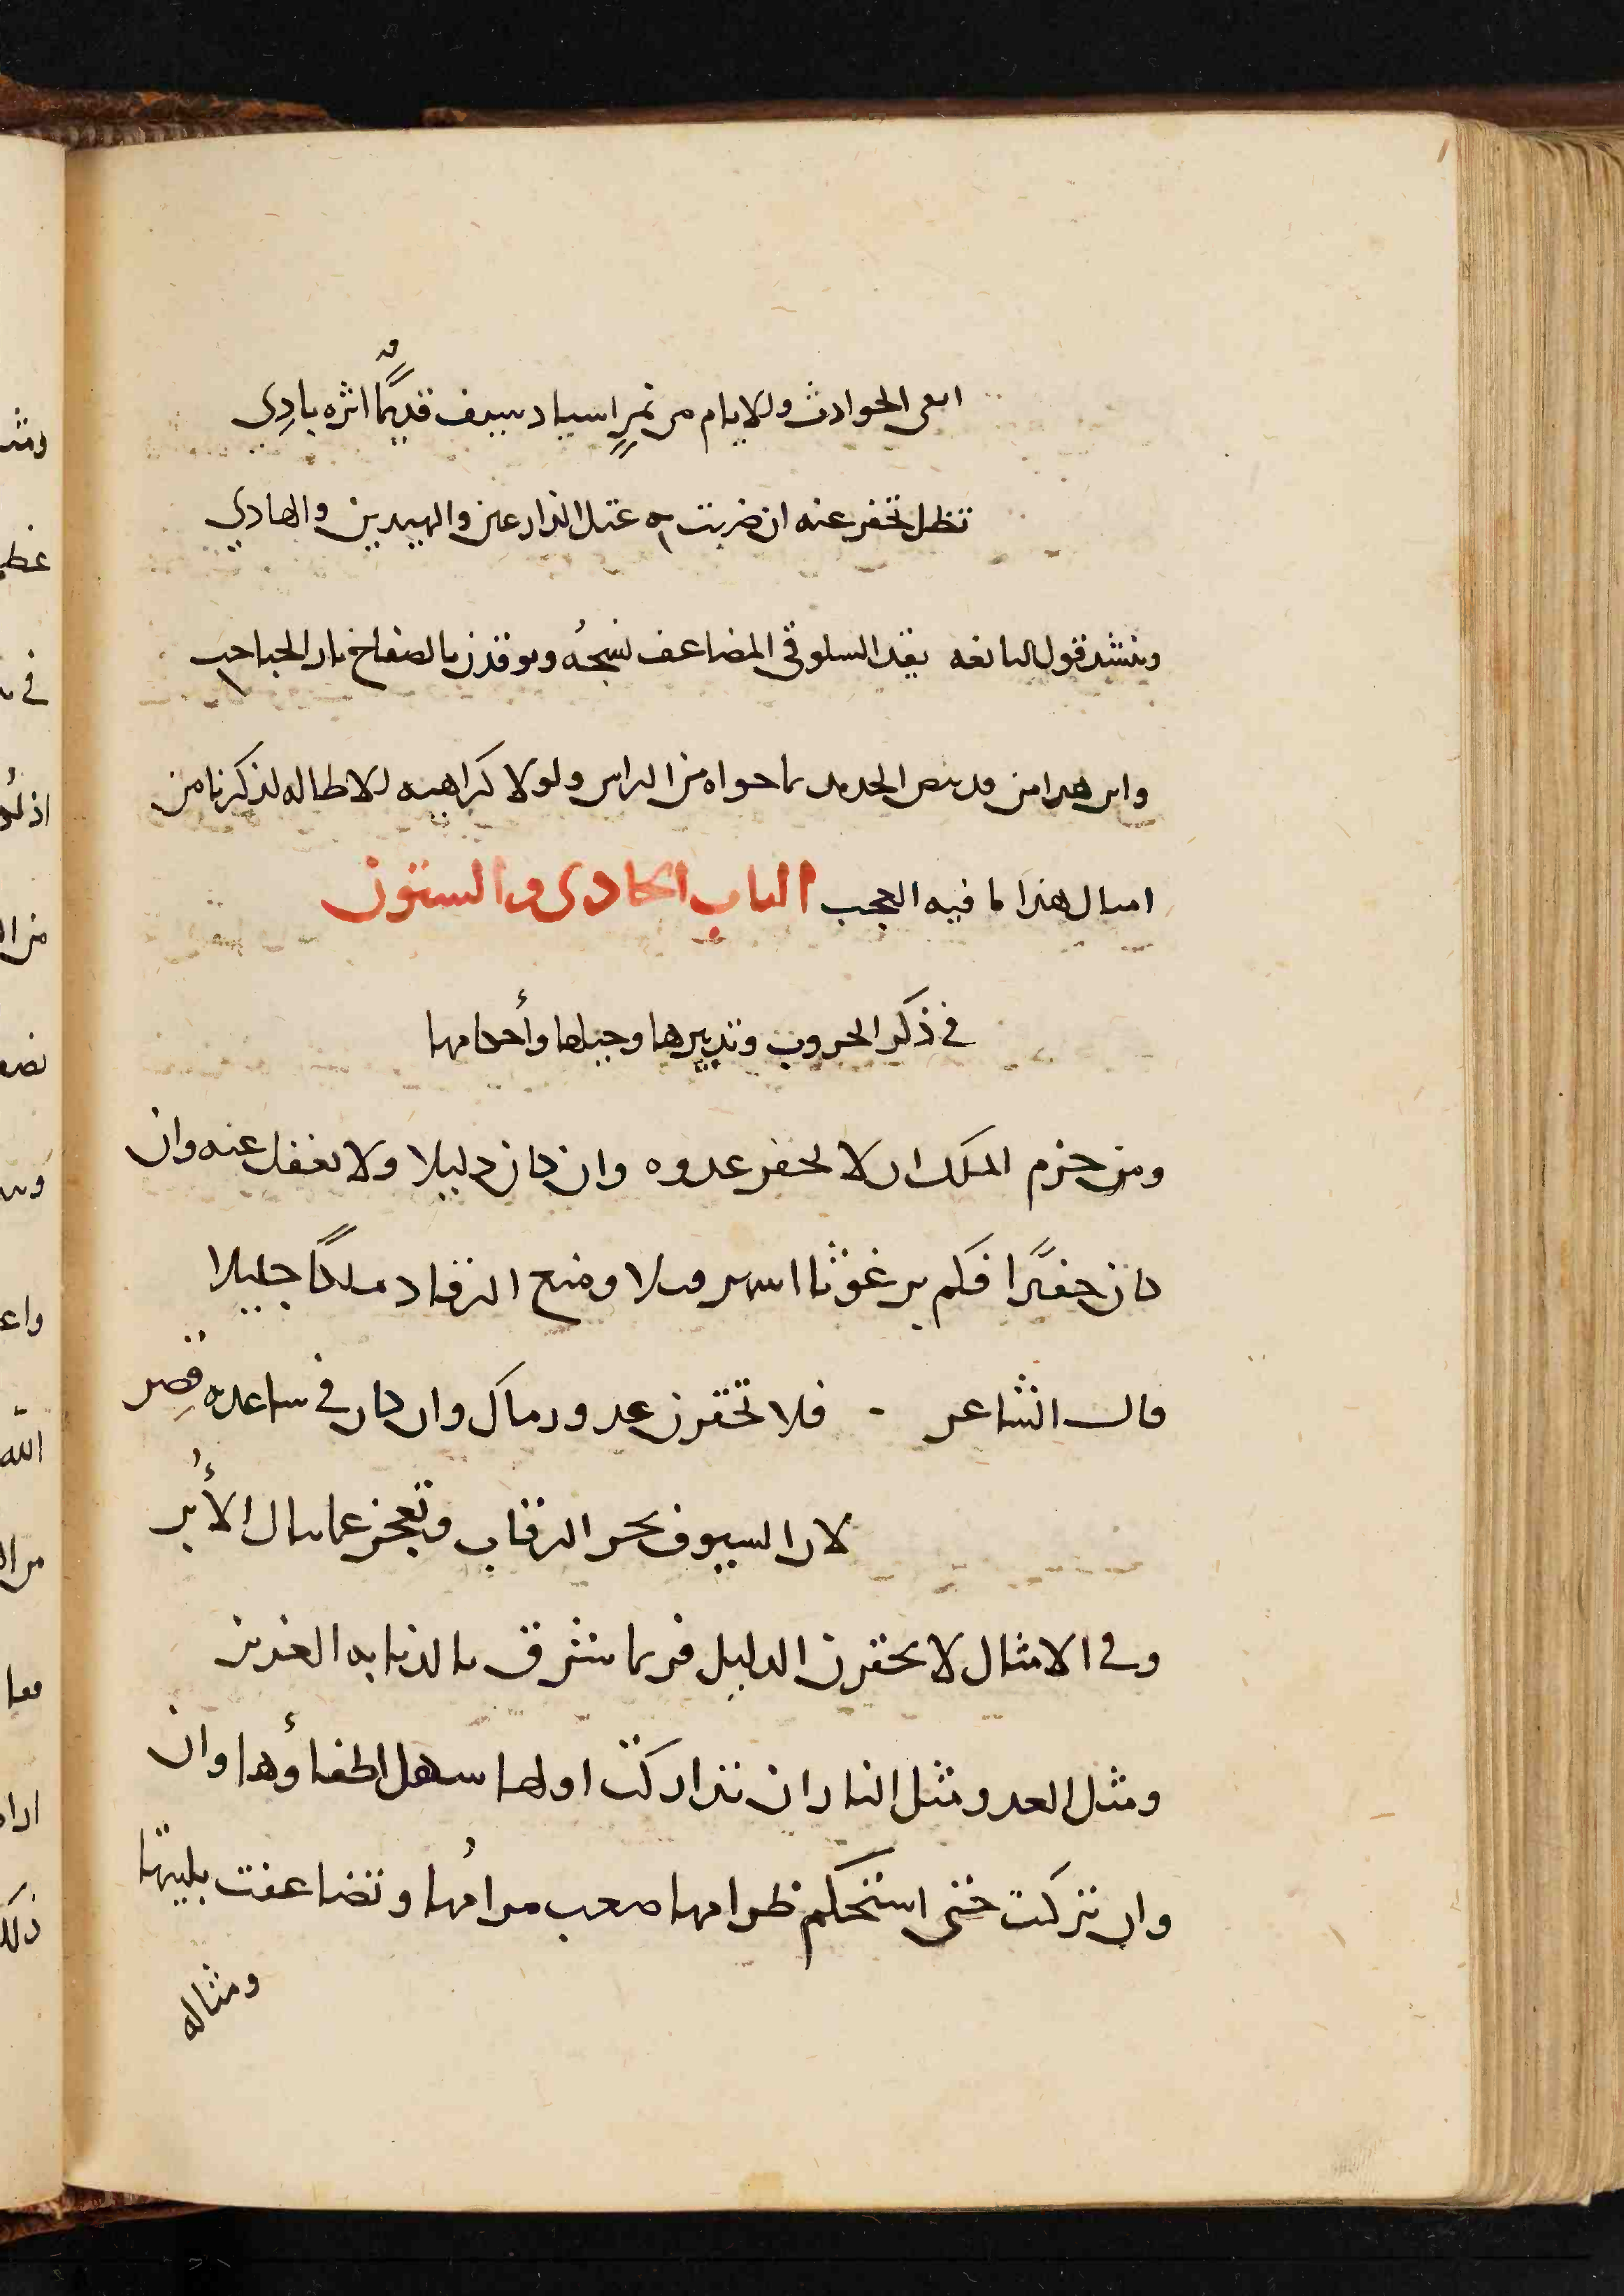 ابقى الحوادث والايام من نمرٍ اسباد سيف قديمًا اثره بادِي
تظل تحفر عنه ان ضربت به عند الذراعين والهيدين والهادي
وينشد قول النابغه يقد السلوقي المضاعف نسجُه ويوقدن بالصفاح نار الحباحب
واين هذا من قد يصف الحديد بما حواه من الراس ولولا كراهيه الاطاله لذكرنا من
امثال هذا ما فيه العجب الباب الحادى والستون
في ذكر الحروب وتدبيرها وحيلها وأحكامها
ومن حزم الملك ان لا يحقر عدوه وان كان ذليلا ولا يغفل عنه وان
كان حقيرًا فكم برغوثا اسهر فيلا ومنع الرقاد ملكًا جليلا
قال الشاعر فلا تحقرن عدو رماك وان كان في ساعديه قصِر
لان السيوف تحز الرقاب وتعجز عما تنال الأبُر
وفى الامثال لا تحقرن الذليل فربما شرق بالذبابه العزيز
ومثل العدو مثل النار ان تداركت اولها سهل اطفاؤها وان
وان تركت حتى استحكم ظرامها صعب مرامُها وتضاعفت بليتها
ومثاله